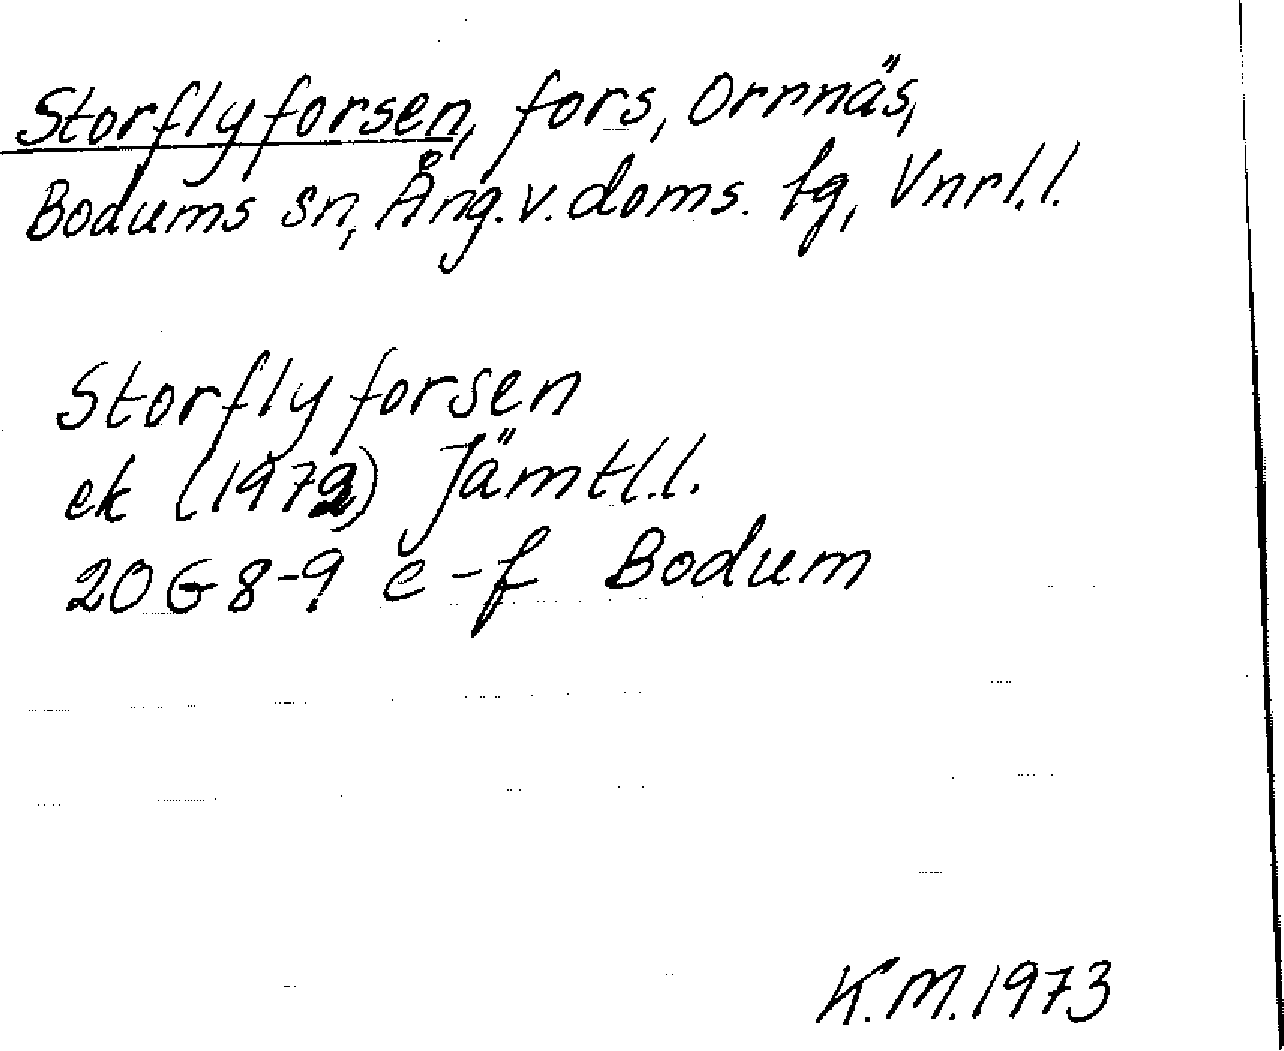 Storflyforsen, fors, Orrnäs,
Bodums sn, Ång. v. doms. tg, Vnrl.l.
Storflyforsen
ek (1972) Jämtl.l.
20G 8-9 e-f Bodum
K.M. 1973